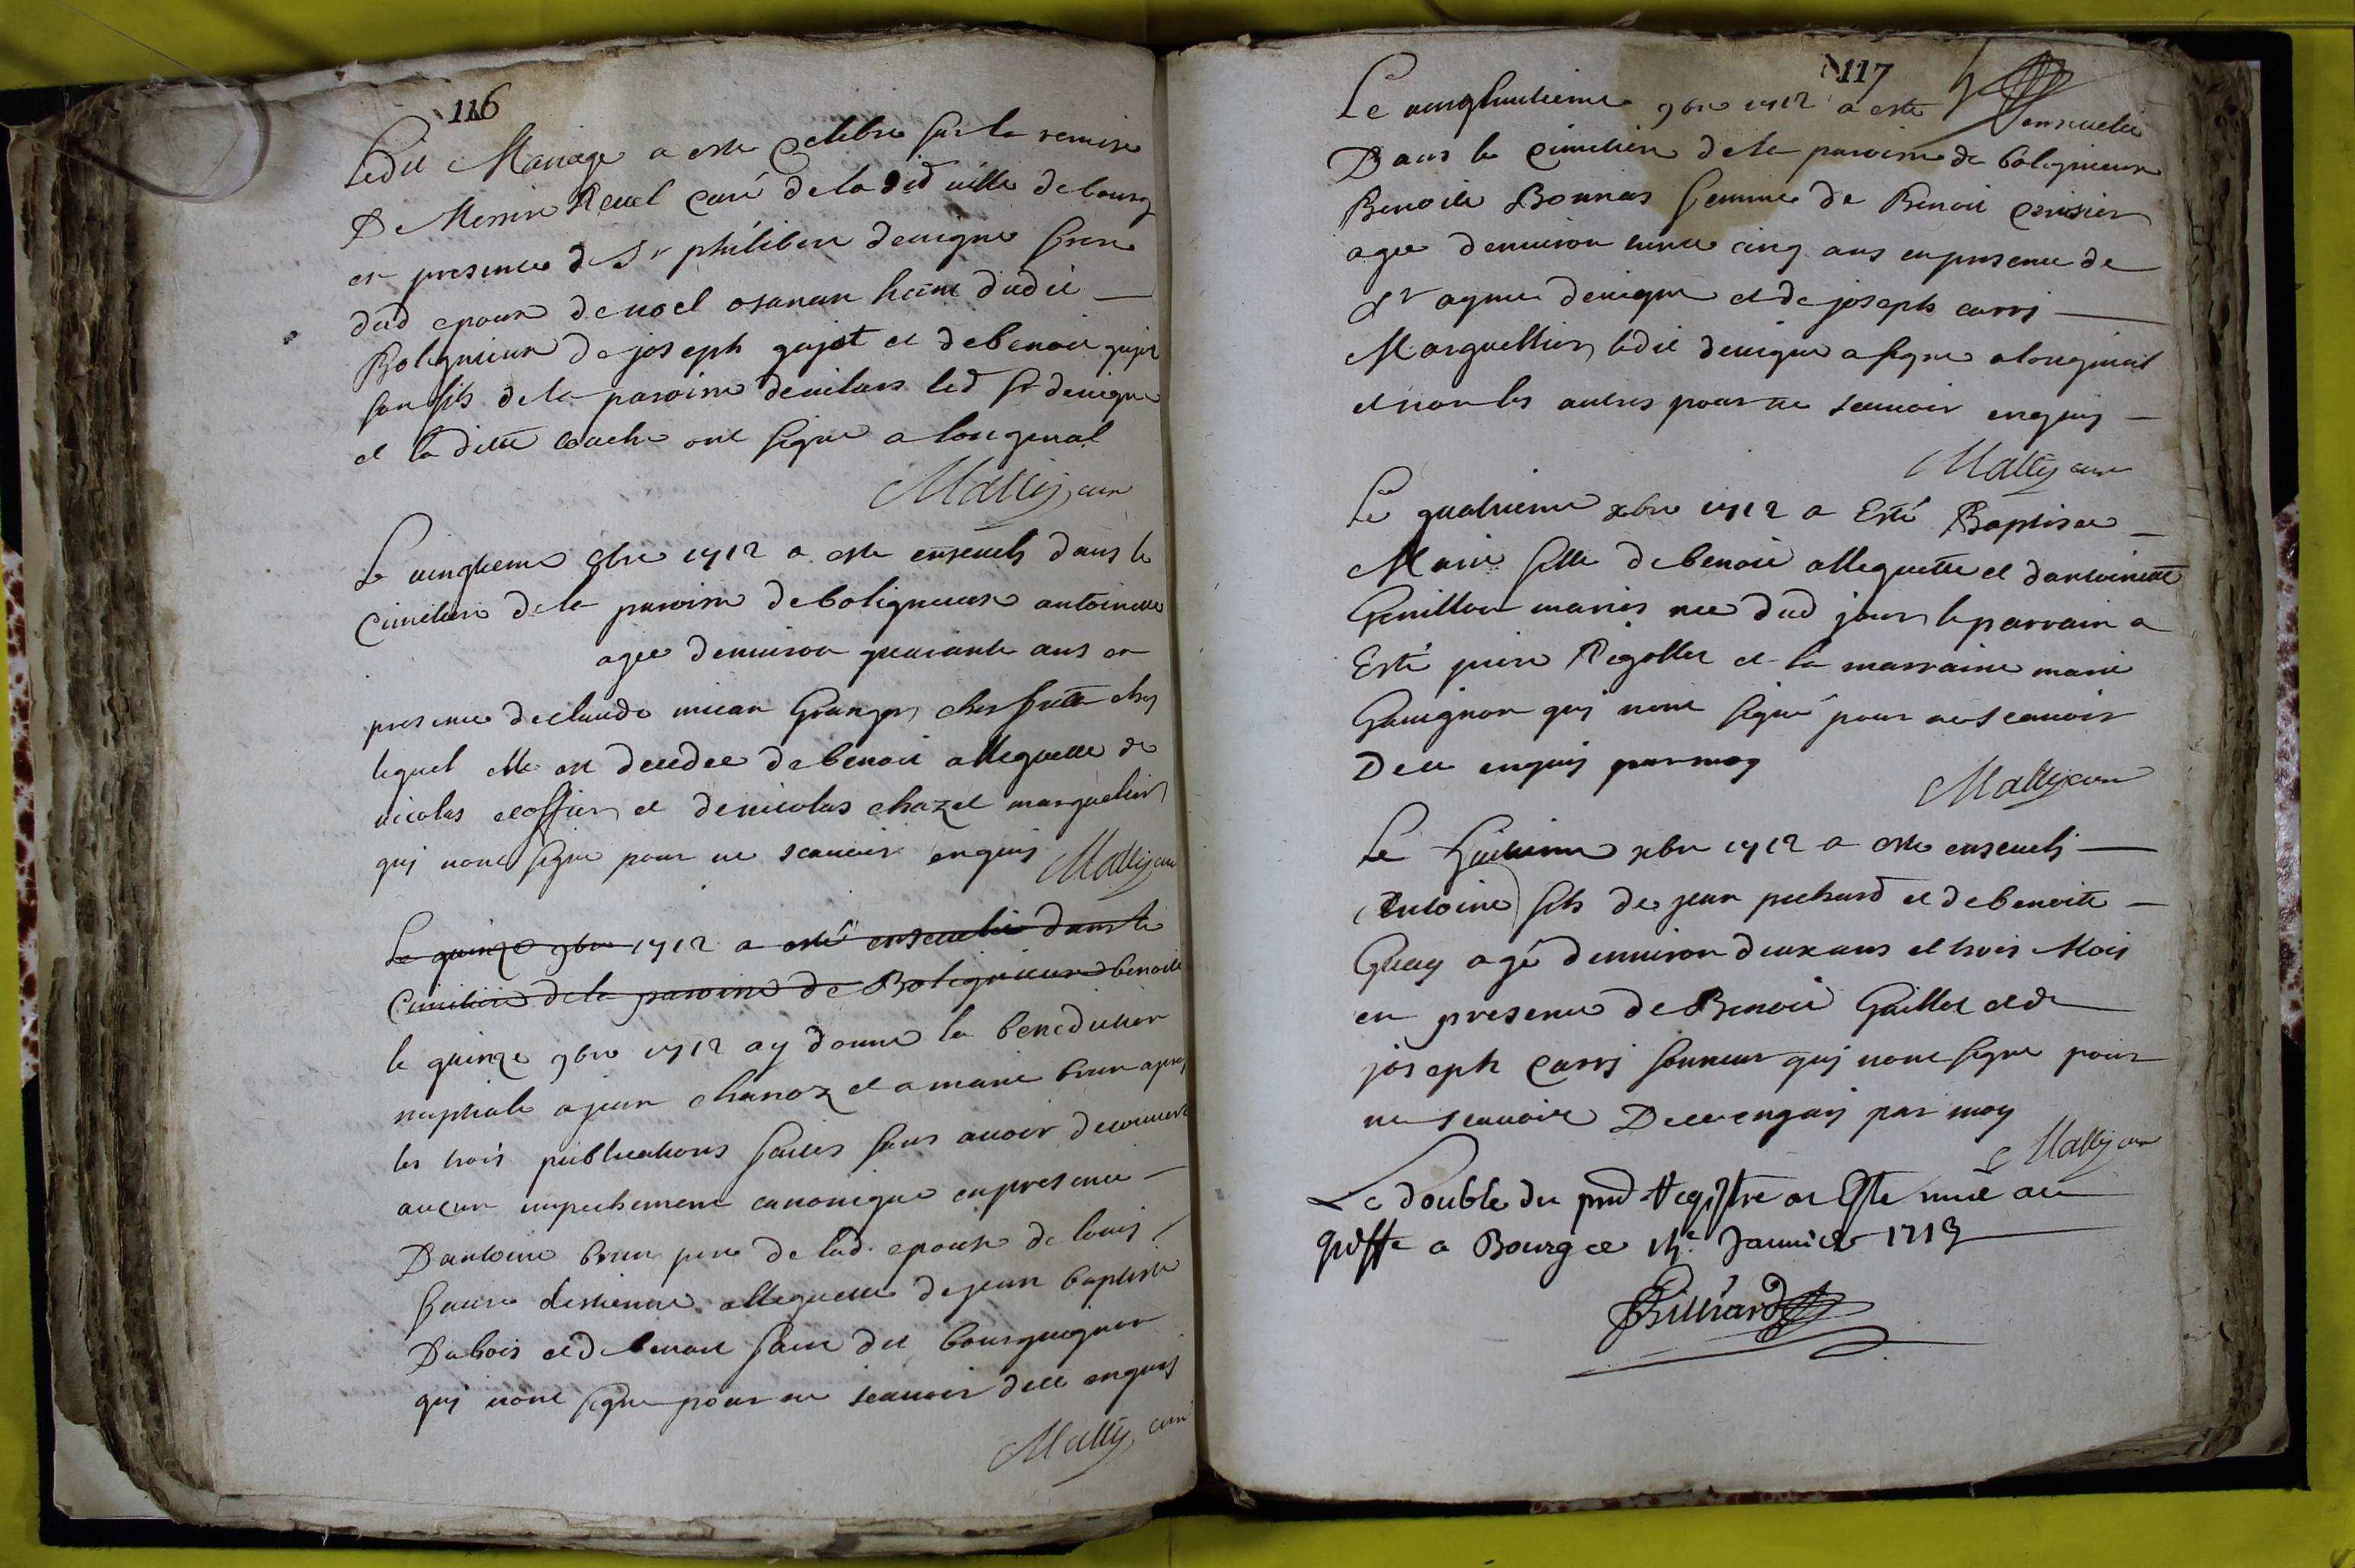 116
Ledit Mariage a este Celebre sur la remise
De Messire Revel Curé de lad ville de bourg
en presence de Sr philibert devigne frere
dud epoux de noel osanan hoem dudit
Boligneux de joseph gujot et de benoit gujot
son fils de la paroisse de vilars led Sr devigne
et la ditte couche ont signe a loriginal
Mattij cure
Le vingtieme 8bre 1712 a este enseveli dans le
Cimetiere de la paroisse de boligneux antoinette
agee denviron quarante ans en
presence de claude micar Granger cher
lequel elle est decedee de benoit alleguette de
nicolas et de nicolas chazel marguelier
qui nont signe pour ne scavoir enquis Mattij cure
Le quinze 9bre 1712 a esté ensevelie dans le
Cimetiere de la paroisse de Boligneux benoite
le quinze 9bre 1712 ay donné la benediction
nuptiale a jean chanoz et a marie brun apres
les trois publications faites sans avoir decouvert
aucun empechement canonique en presence
Dantoine brun pere de lad. epouse de louis
faure destienne allequette de jean baptiste
Dubois et de benoit faure dit bourguignon
qui nont signe pour ne scavoir de ce enquis
Mattij cure
117
Le vingthuitieme 9bre 1712 a este ensevelie
Dans le Cimetiere de la paroisse de boligneux
Benoite Bonnas femme de Benoit Cerisier
agee denviron trente cinq ans en presence de
Sr aymé devigne et de joseph carrj
Marguellier ledit devigne a signe a loriginal
et non les autres pour ne scavoir enquis
Mattij cure
Le quatrieme xbre 1712 a Esté Baptisee
Marie fille de benoit allequette et dantoinette
Genillon mariés nee dud jour le parrain a
Esté piere Rigollet et la marraine marie
Gavignon qui nont signé pour ne scavoir
De ce enquis par moy
Mattij cure
Le huitieme xbre 1712 a este enseveli
Antoine fils de jean pechard et de benoite
Guay agé denviron deux ans et trois Mois
en presence de Benoit Gaillot et de
joseph Carrj sonneur qui nont signe pour
ne scavoir De ce enquis par moy
Mattij cure
Le double du pnd Registre a Este mis au
greffe a Bourg ce Janvier 1713
Billiard